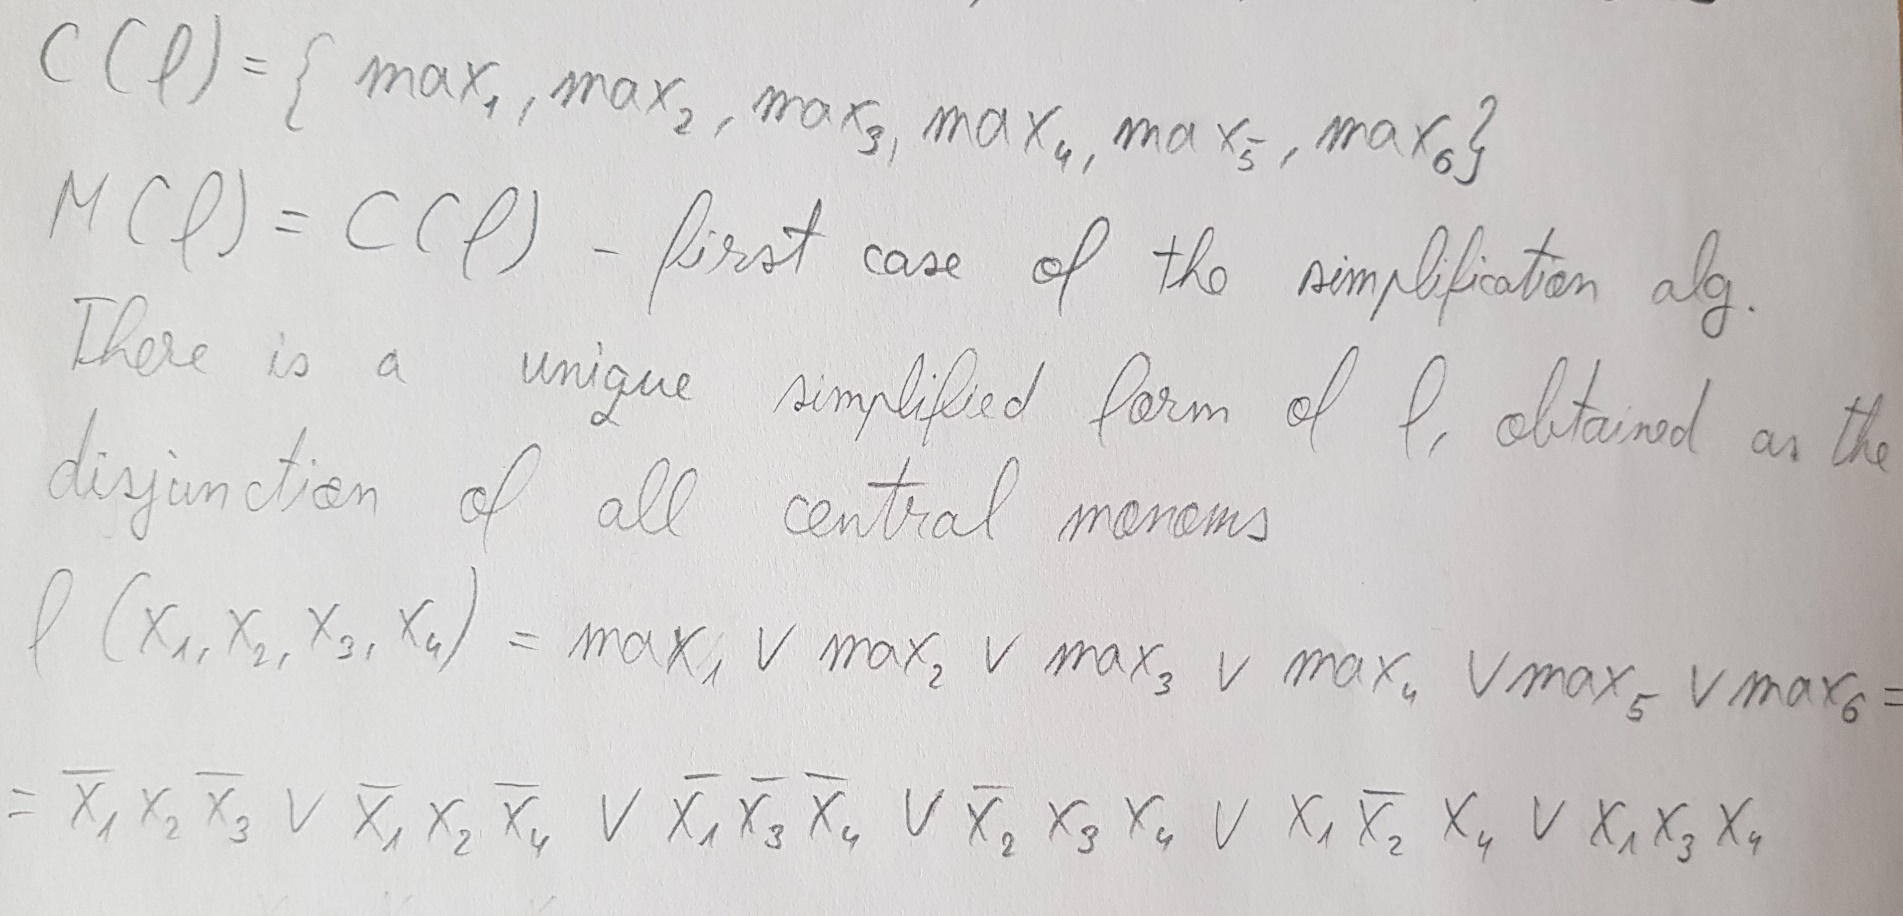 C(f) = { max₁, max₂, max₃, max₄, max₅, max₆}
M(f) = C(f) - first case of the simplification alg.
There is a unique simplified form of f, obtained as the
disjunction of all central monoms
f (x₁, x₂, x₃, x₄) = max₁ ∨ max₂ ∨ max₃ ∨ max₄ ∨ max₅ ∨ max₆ =
= x̅₁ x₂ x̅₃ ∨ x̅₁ x₂ x̅₄ ∨ x̅₁ x̅₃ x̅₄ ∨ x̅₂ x₃ x₄ ∨ x₁ x̅₂ x₄ ∨ x₁ x₃ x₄